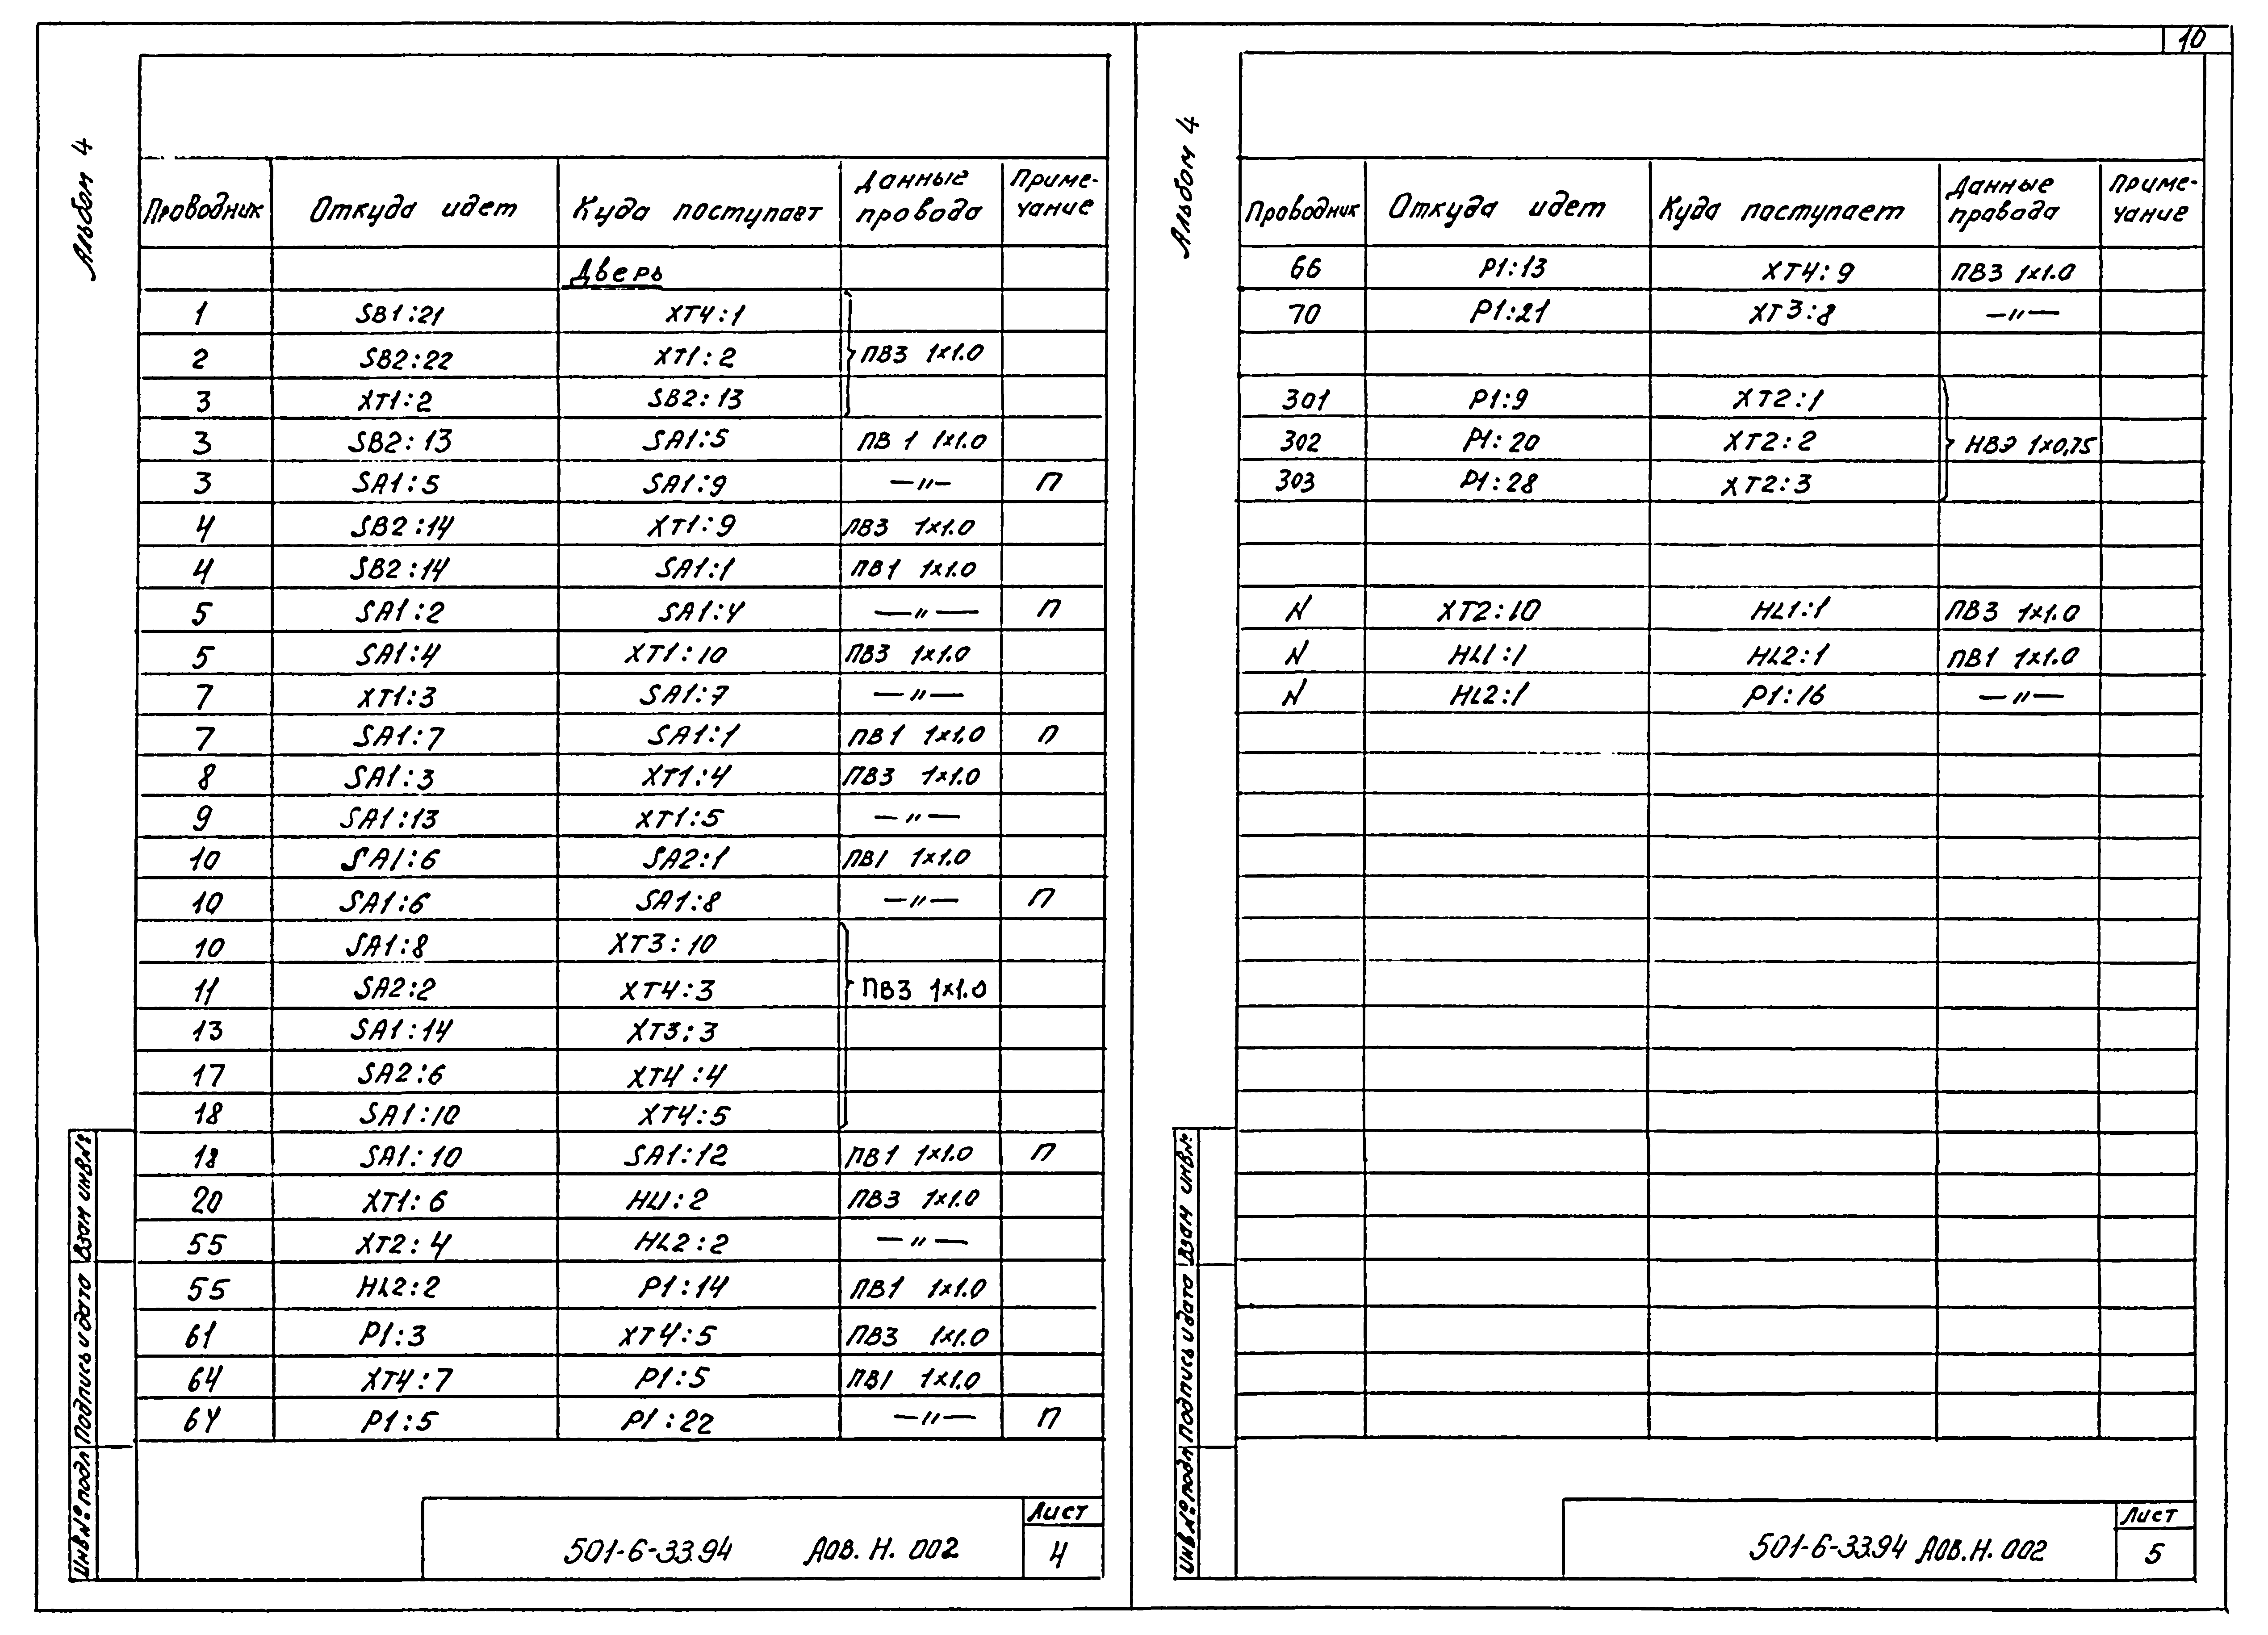 10
Альбом 4
Проводник Откуда идет Куда поступает Данные провода Приме-чание
Дверь
1 SB1:21 XT4:1
2 SB2:22 XT1:2 ПВ3 1×1.0
3 XT1:2 SB2:13
3 SB2:13 SA1:5 ПВ 1 1×1.0
3 SA1:5 SA1:9 —〃— П
4 SB2:14 XT1:9 ПВ3 1×1.0
4 SB2:14 SA1:1 ПВ1 1×1.0
5 SA1:2 SA1:4 —〃— П
5 SA1:4 XT1:10 ПВ3 1×1.0
7 XT1:3 SA1:7 —〃—
7 SA1:7 SA1:1 ПВ1 1×1.0 П
8 SA1:3 XT1:4 ПВ3 1×1.0
9 SA1:13 XT1:5 —〃—
10 SA1:6 SA2:1 ПВ1 1×1.0
10 SA1:6 SA1:8 —〃— П
10 SA1:8 XT3:10
11 SA2:2 XT4:3 ПВ3 1×1.0
13 SA1:14 XT3:3
17 SA2:6 XT4:4
18 SA1:10 XT4:5
18 SA1:10 SA1:12 ПВ1 1×1.0 П
20 XT1:6 HL1:2 ПВ3 1×1.0
55 XT2:4 HL2:2 —〃—
55 HL2:2 P1:14 ПВ1 1×1.0
61 P1:3 XT4:5 ПВ3 1×1.0
64 XT4:7 P1:5 ПВ1 1×1.0
64 P1:5 P1:22 —〃— П
Инв.№ подл Подпись и дата Взам инв.№
501-6-33.94 АОВ.Н.002
Лист
4
Альбом 4
Проводник Откуда идет Куда поступает Данные провода Приме-чание
66 P1:13 XT4:9 ПВ3 1×1.0
70 P1:21 XT3:8 —〃—
301 P1:9 XT2:1
302 P1:20 XT2:2 НВЭ 1×0,75
303 P1:28 XT2:3
N XT2:10 HL1:1 ПВ3 1×1.0
N HL1:1 HL2:1 ПВ1 1×1.0
N HL2:1 P1:16 —〃—
Инв.№ подл Подпись и дата Взам инв.№
501-6-33.94 АОВ.Н.002
Лист
5